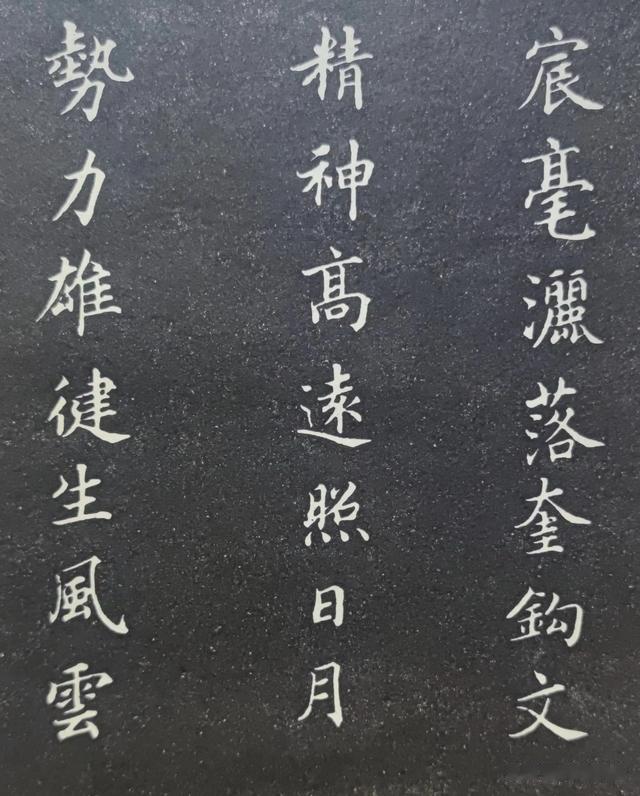 宸毫灑落奎鈎文
精神高遠照日月
勢力雄健生風雲